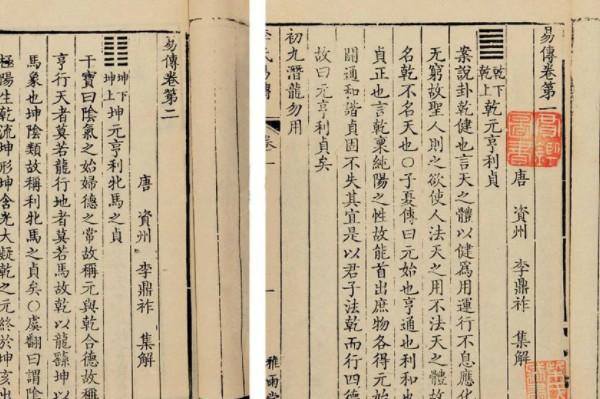 易傳卷第一
唐 資州 李鼎祚 集解
乾下
乾上
乾元亨利貞
案說卦乾健也言天之體以健爲用運行不息應化
无窮故聖人則之欲使人法天之用不法天之體故
名乾不名天也〇子夏傳曰元始也亨通也利和也
貞正也言乾稟純陽之性故能首出庶物各得元始
開通和諧貞固不失其宜是以君子法乾而行四德
故曰元亨利貞矣
初九潛龍勿用
李氏易傳 卷一
雅雨堂
易傳卷第二
唐 資州 李鼎祚 集解
坤下
坤上
坤元亨利牝馬之貞
干寶曰陰氣之始婦德之常故稱元與乾合德故稱
亨行天者莫若龍行地者莫若馬故乾以龍繇坤以
馬象也坤陰類故稱利牝馬之貞矣〇虞翻曰謂陰
極陽生乾流坤形坤含光大凝乾之元終於坤亥出